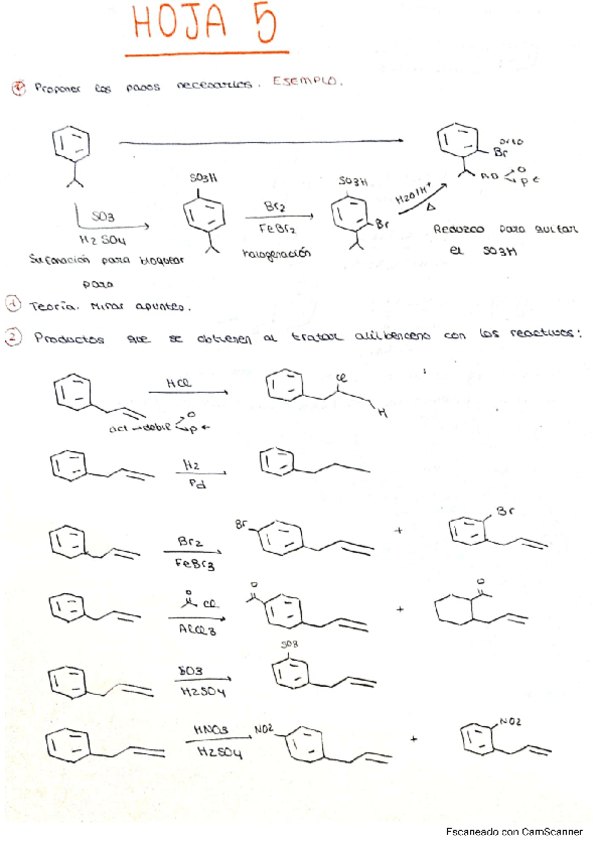 HOJA 5
Proponer los pasos necesarios. EJEMPLO.
orto
Br
NO
o
p
SO3H
SO3H
SO3
H2SO4
Br2
FeBr2
Br
H2O/H+
Δ
Sulfonación para bloquear
para
halogenación
Reduzco para quitar
el SO3H
1 Teoría. Mirar apuntes.
2 Productos que se obtienen al tratar alilbenceno con los reactivos:
HCl
Cl
H
act → débil
o
p
H2
Pd
Br2
FeBr3
Br
+
Br
O
Cl
AlCl3
O
+
O
SO3
H2SO4
SO3
HNO3
H2SO4
NO2
+
NO2
Escaneado con CamScanner